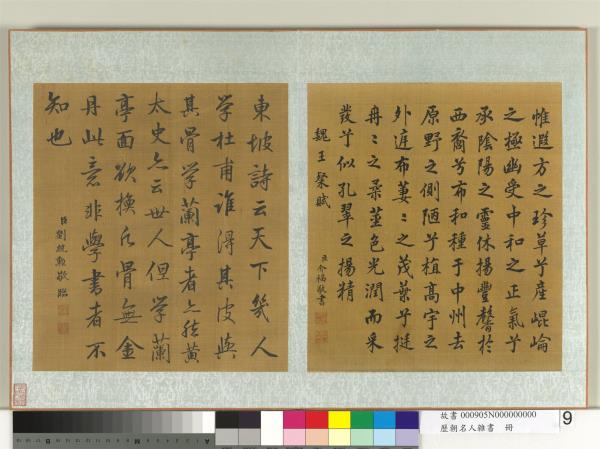 惟遐方之珍草兮產崐崘
之極幽受中和之正氣兮
承陰陽之靈休揚豐馨於
西裔兮布和種于中州去
原野之側陋兮植高宇之
外庭布萋〻之茂葉兮挺
冉〻之柔莖色光潤而采
發兮似孔翠之揚精
魏王粲賦
臣介福敬書
東坡詩云天下幾人
學杜甫誰得其皮與
其骨學蘭亭者亦然黃
太史亦云世人但學蘭
亭面欲換凡骨無金
丹此意非學書者不
知也
臣劉統勳敬臨
故書 000905N000000000
歷朝名人雜書 冊
9